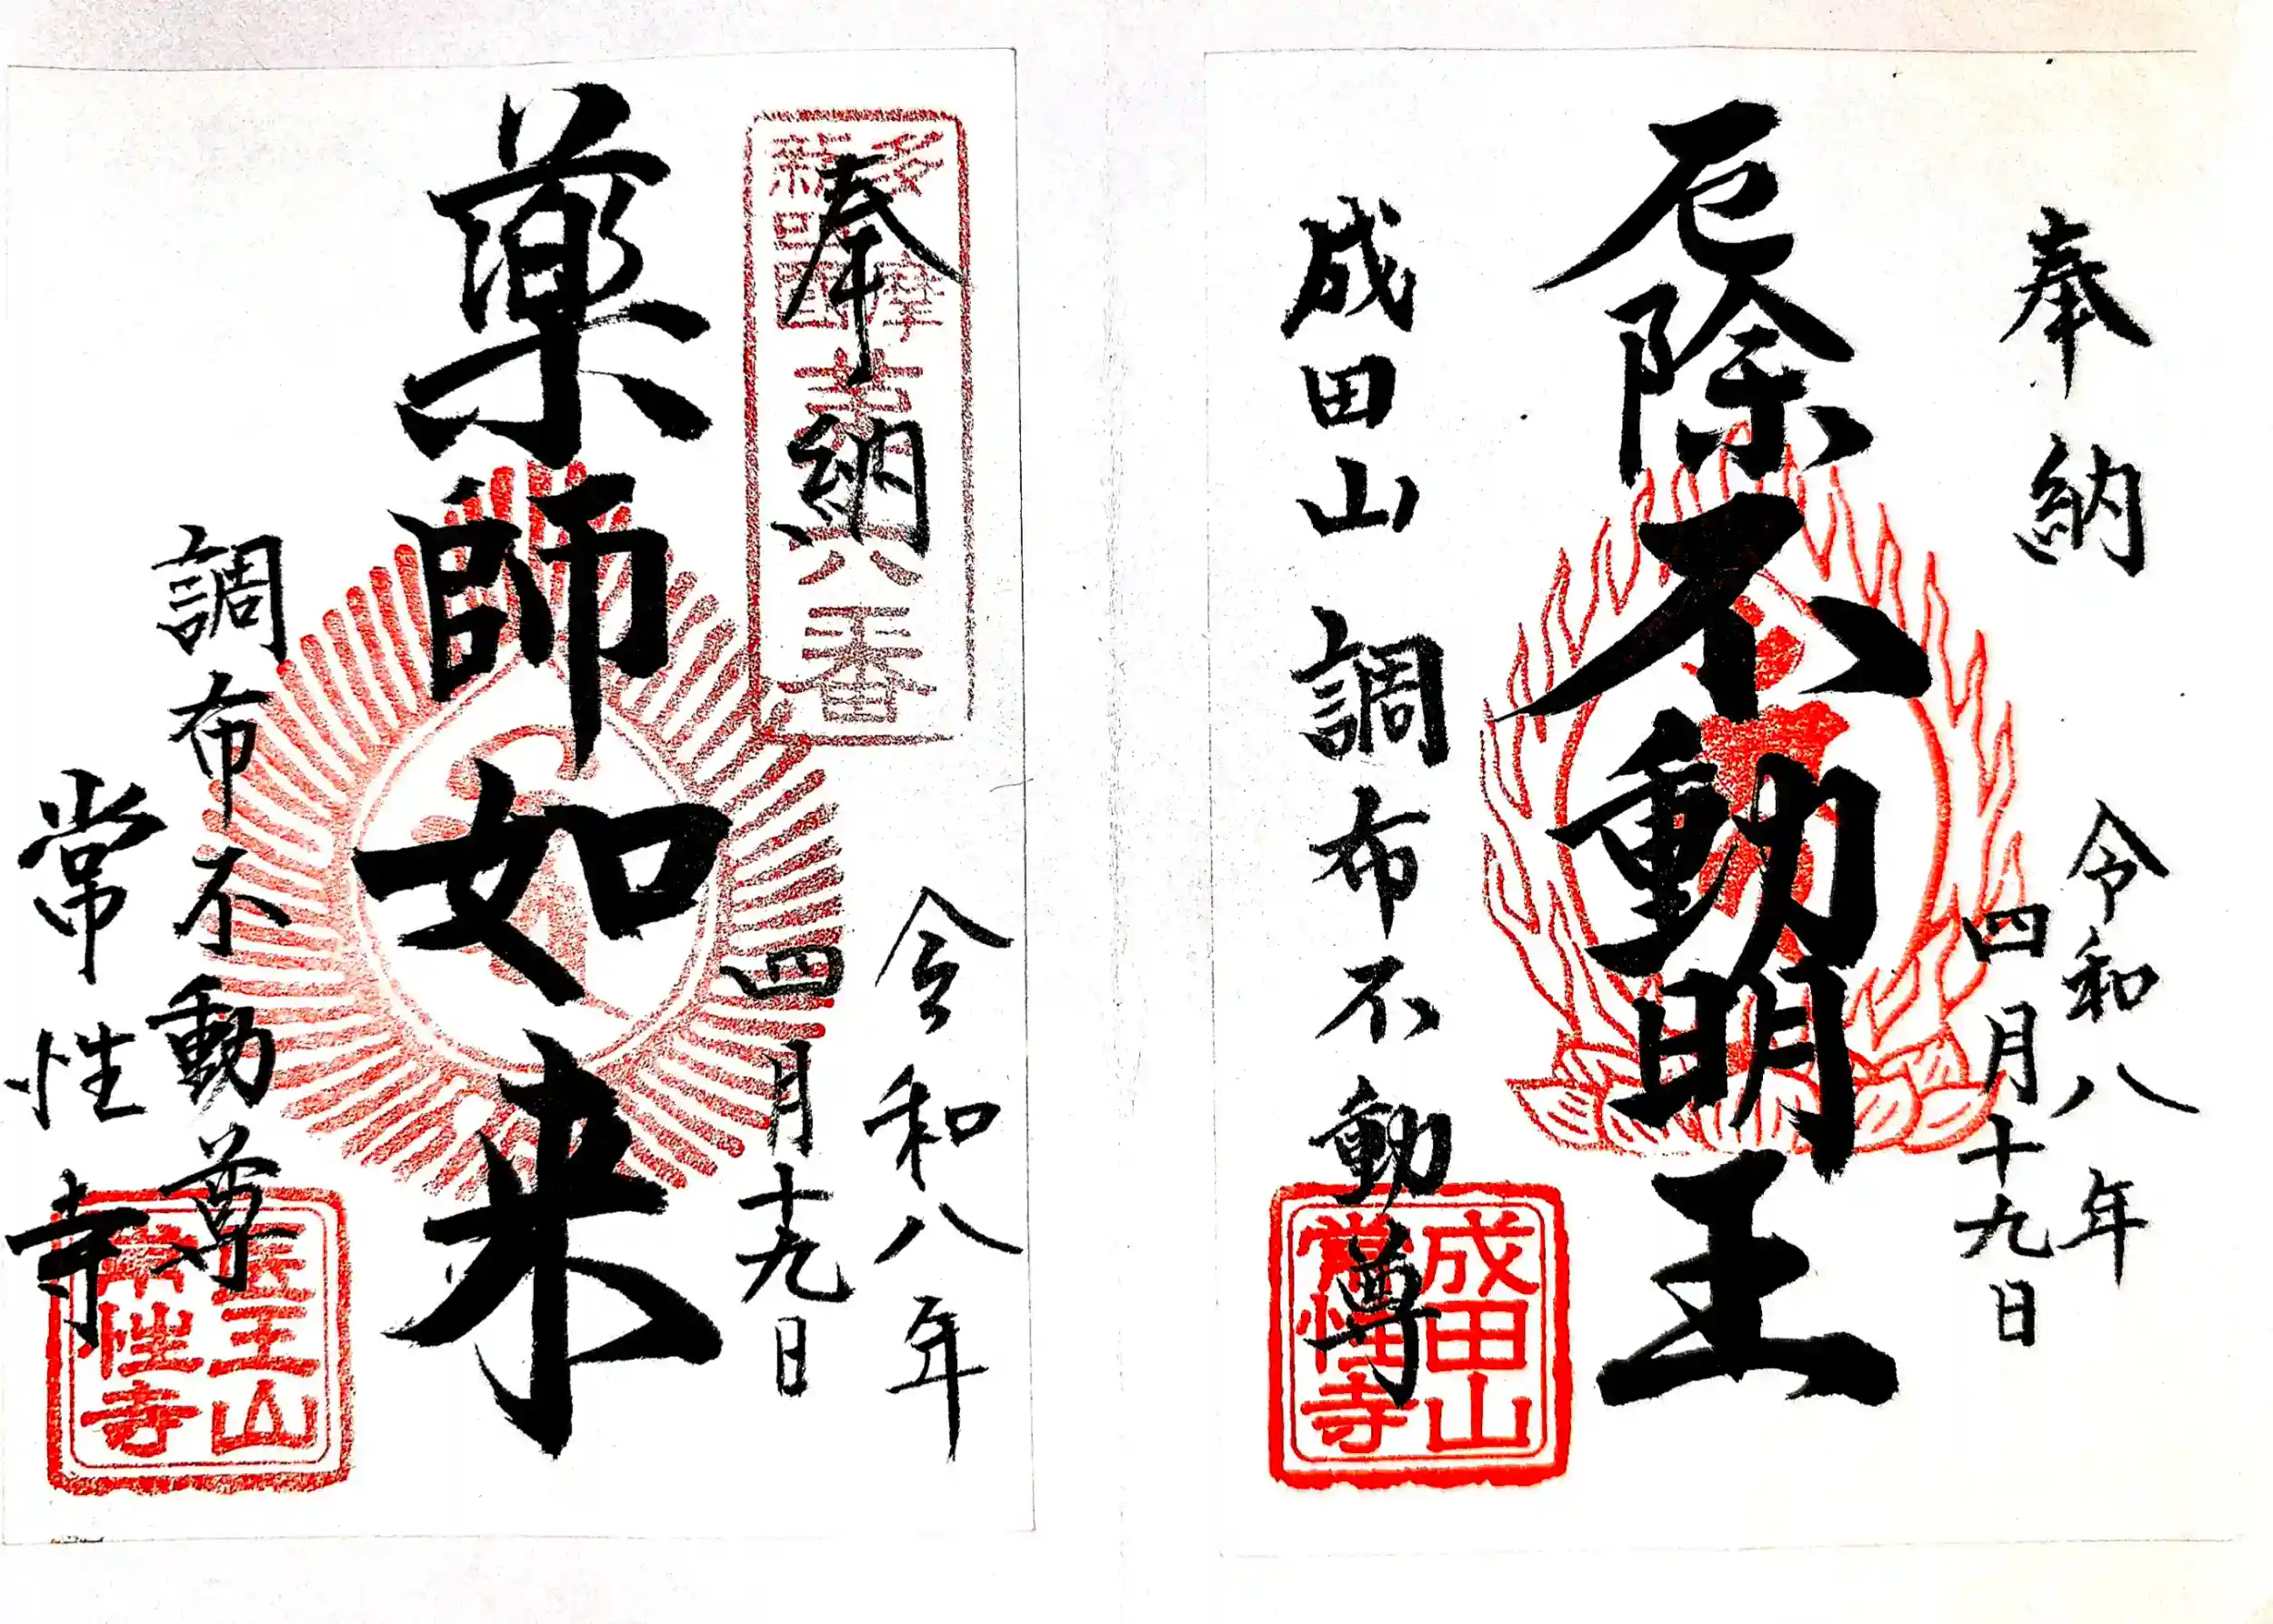 奉納
令和八年
四月十九日
厄除不動明王
成田山調布不動尊
成田山
常性寺
奉納
多摩
新四国
第六番
令和八年
四月十九日
薬師如来
調布不動尊
常性寺
医王山
常性寺